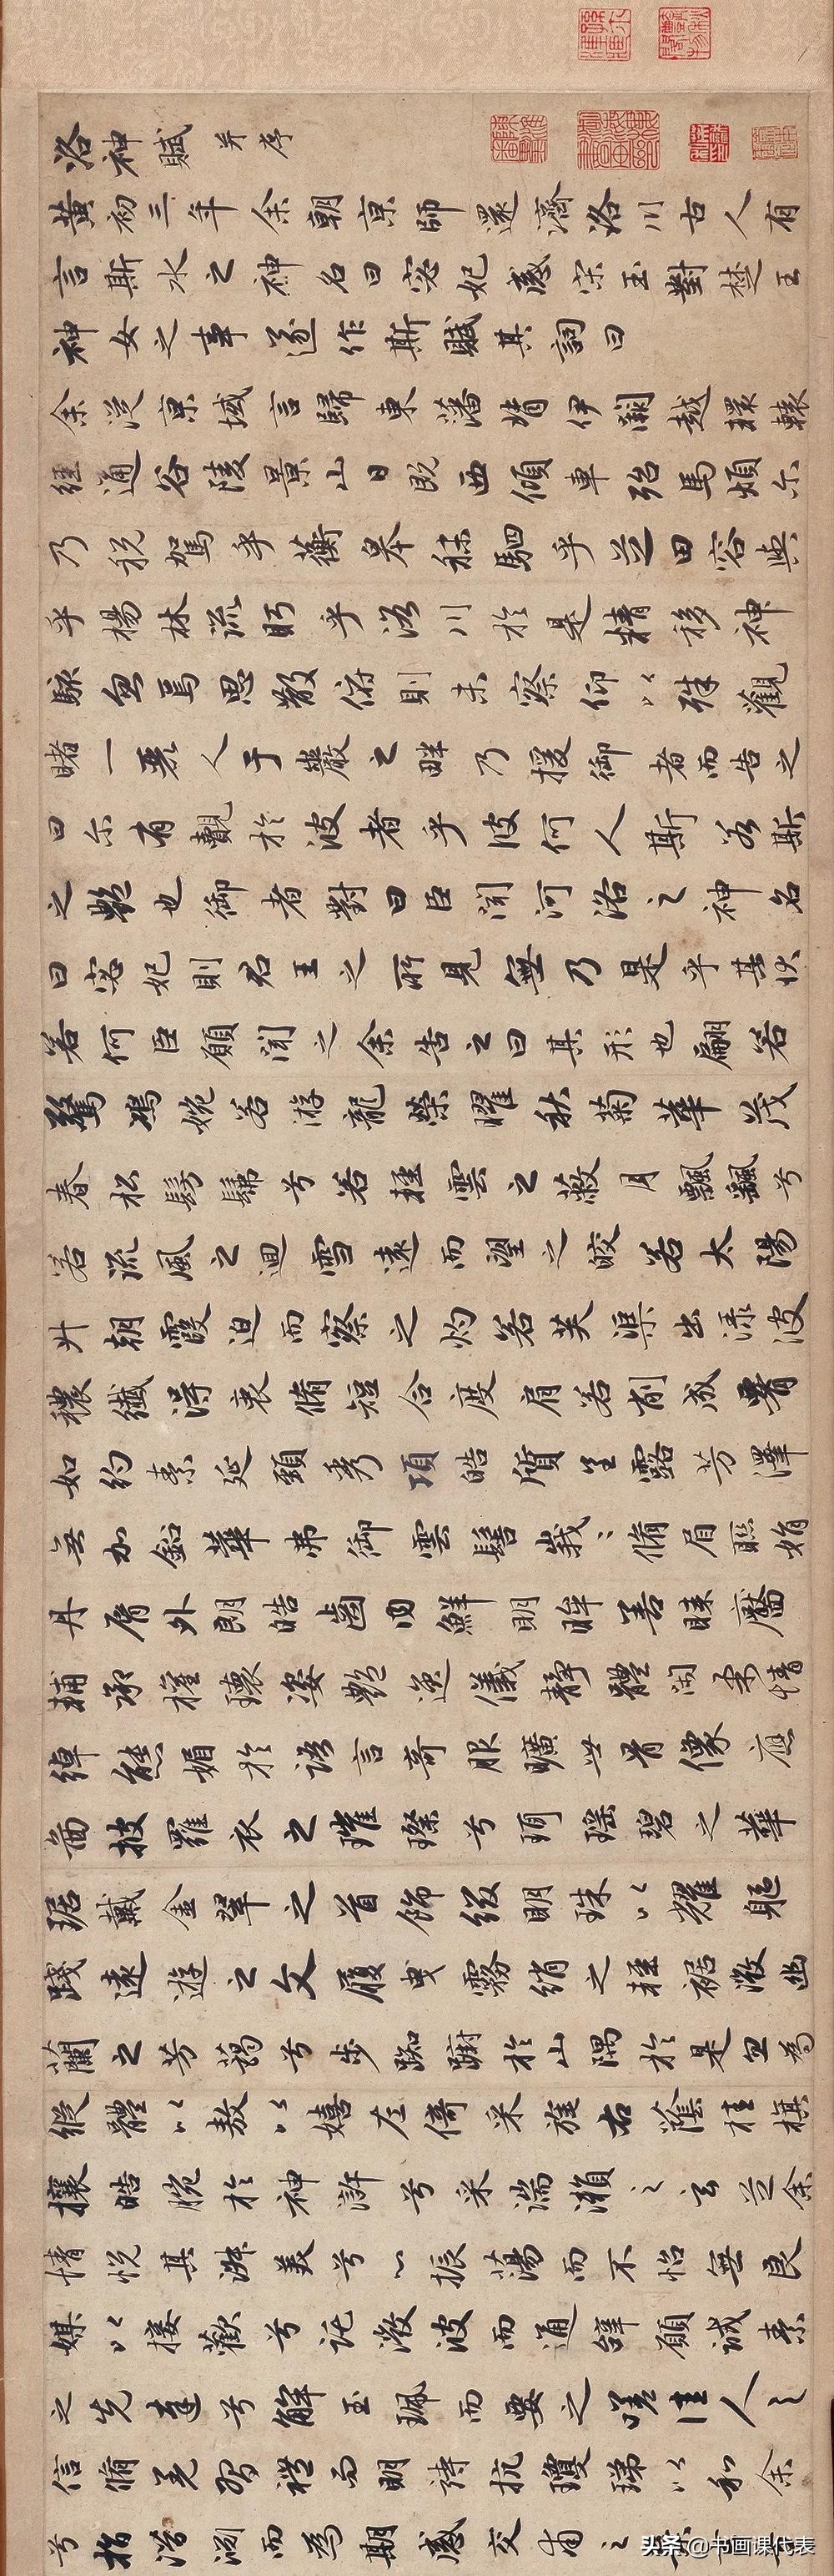 洛神賦 并序
黃初三年余朝京師還濟洛川古人有
言斯水之神名曰宓妃感宋玉對楚王
神女之事遂作斯賦其詞曰
余從京域言歸東藩背伊闕越轘轅
經通谷陵景山日既西傾車殆馬煩尒
乃稅駕乎蘅皋秣駟乎芝田容與
乎楊林流眄乎洛川於是精移神
駭忽焉思散俯則未察仰以殊觀
睹一麗人于巖之畔乃援御者而告之
曰尒有覿於波者乎彼何人斯若斯
之艷也御者對曰臣聞河洛之神名
曰宓妃則君王之所見無乃是乎其狀
若何臣願聞之余告之曰其形也翩若
驚鴻婉若游龍榮曜秋菊華茂
春松髣髴兮若輕雲之蔽月飄颻兮
若流風之迴雪遠而望之皎若太陽
升朝霞迫而察之灼若芙渠出淥波
穠纖得衷脩短合度肩若削成署
如約素延頸秀項皓質呈露芳澤
無加鉛華弗御雲髻峩〻脩眉聯娟
丹脣外朗皓齒內鮮明眸善睞靨
輔承權瓌姿艷逸儀靜體閑柔情
綽態媚於語言奇服曠世骨像應
圖披羅衣之璀璨兮珥瑤碧之華
琚戴金翠之首飾綴明珠以耀軀
踐遠遊之文履曳霧綃之輕裾微幽
蘭之芳藹兮步踟躕於山隅於是忽焉
縱體以敖以嬉左倚采旄右蔭桂旗
攘皓腕於神滸兮采湍瀨之玄芝余
情悅其淑美兮心振蕩而不怡無良
媒以接歡兮託微波而通辭願誠素
之先達兮解玉珮而要之嗟佳人之
信脩羌習禮而明詩抗瓊珶以和余
兮指潛淵而為期感交甫之
头条@书画课代表